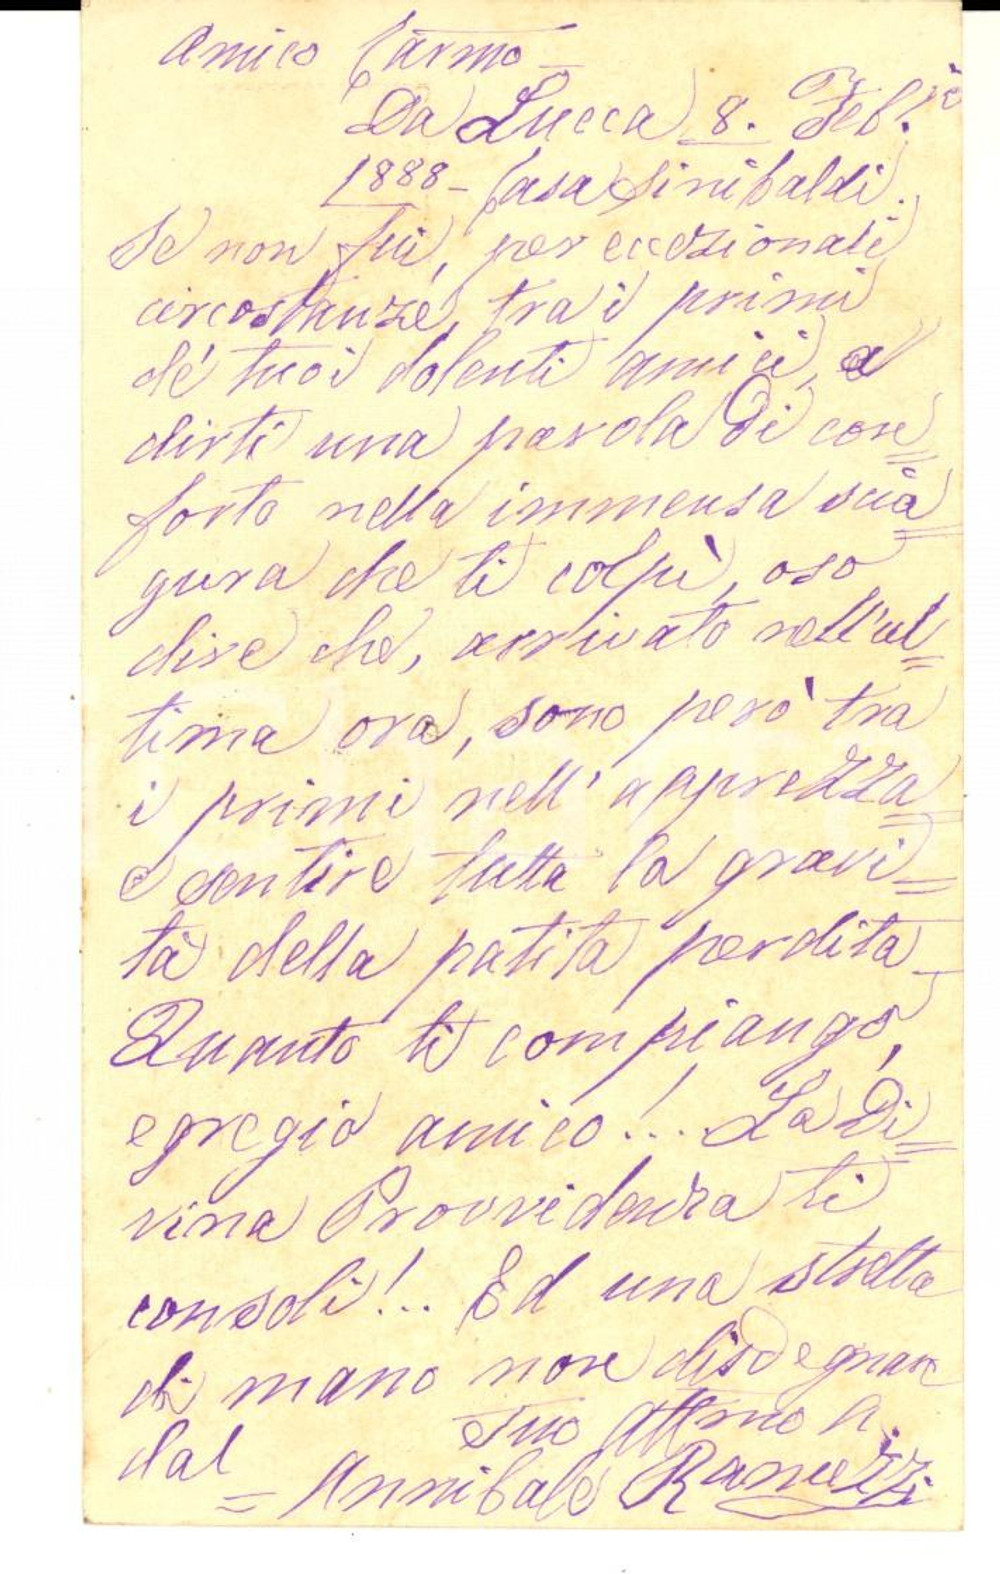 Amico Carmo -
Da Lucca 8. Feb.io
1888 - Casa Sinibaldi.
Se non fui, per eccezionali
circostanze, tra i primi
de' tuoi dolenti amici, a
dirti una parola di con=
forto nella immensa scia=
gura che ti colpì, oso
dire che, arrivato nell'ul=
tima ora, sono però tra
i primi nell'apprezza=
e sentire tutta la gravi=
tà della patita perdita -
Quanto ti compiango,
egregio amico!... La Di=
vina Provvidenza ti
consoli!... Ed una stretta
di mano non disdegnare
dal = tuo affmo a.
Annibale Ranuzzi